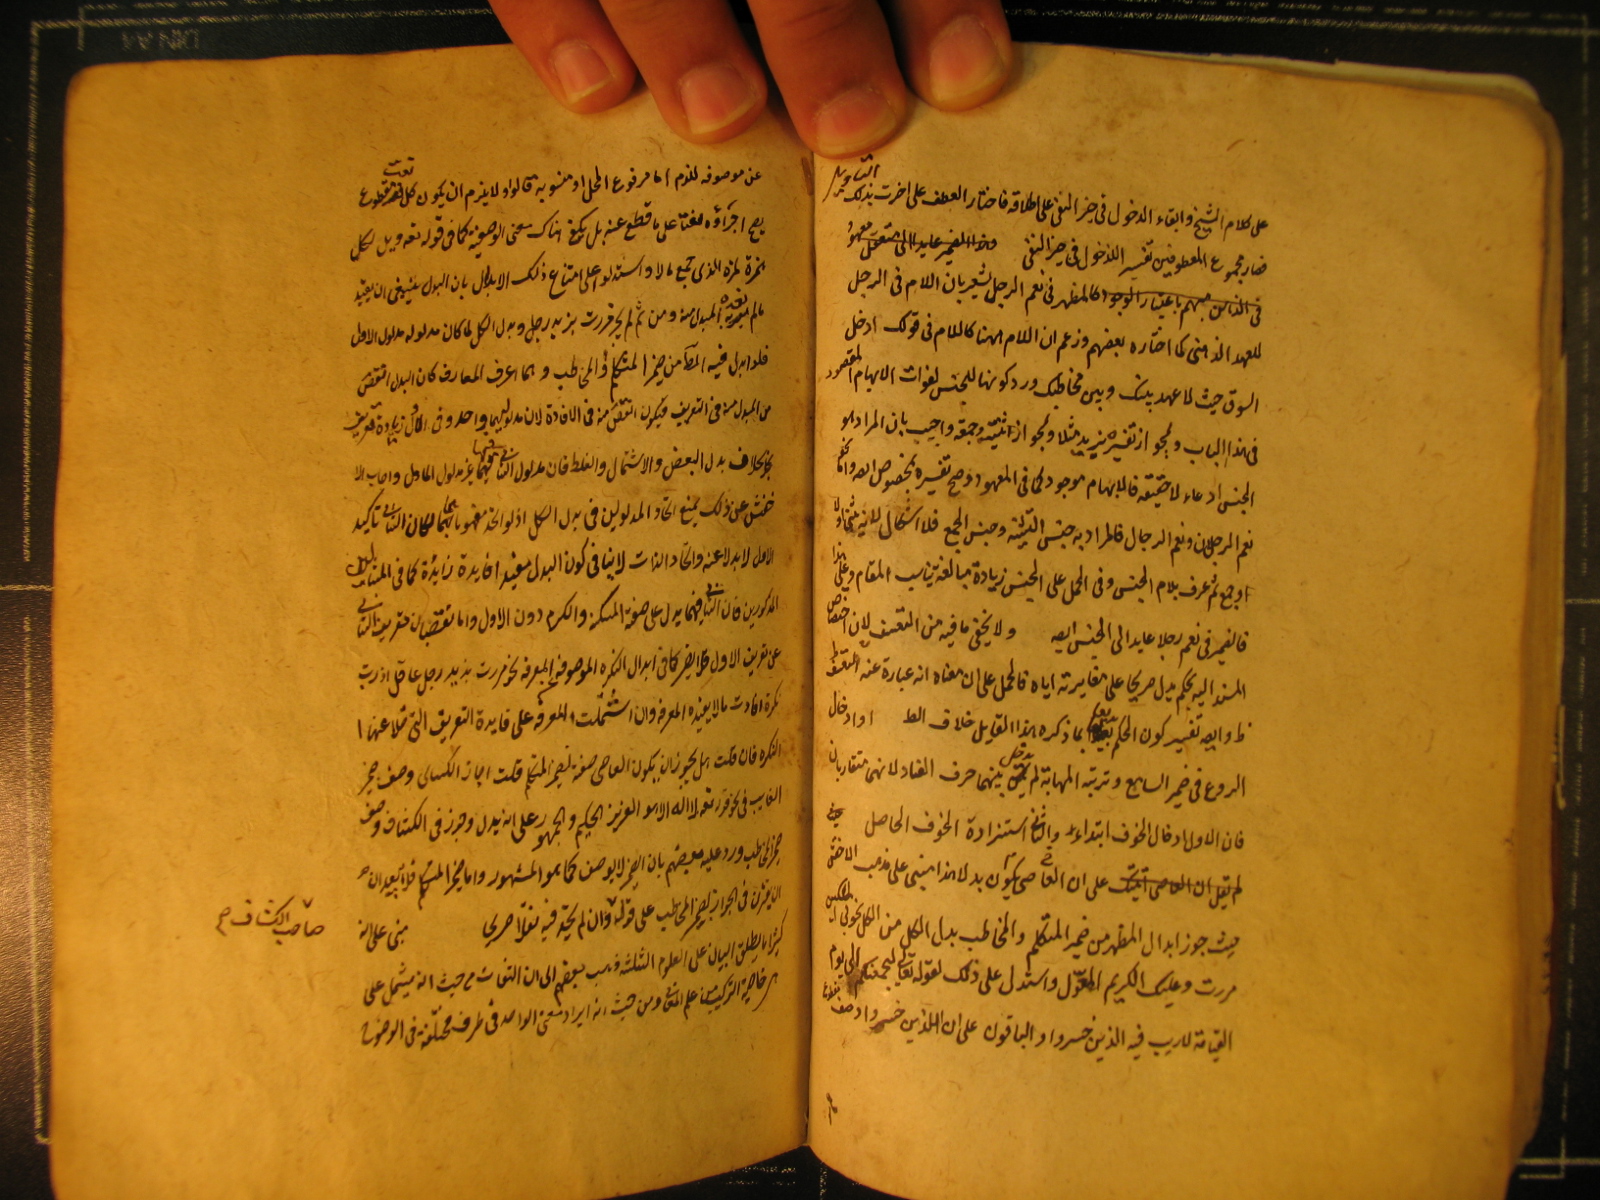 على كلام الشيخ وابقاء الدخول في حيز النفي على اطلاقه فاختار العطف على اخرت بذلك التاويل
فصار مجموع المعطوفين تفسير اللدخول في حيز النفي وهذا الضمير عايد الى متعقل معهود
في الذهن مبهم باعتبار الوجود كالمظهر في نعم الرجل يشعر بان اللام في الرجل
للعهد الذهني كما اختاره بعضهم وزعم ان اللام ههنا كاللام في قولك ادخل
السوق حيث لا عهد بينك وبين مخاطبك ورد كونها للجنس لفوات الابهام المقصود
في هذا الباب ولجواز تفسيره بزيد مثلا ولجواز تثنيته وجمعه واجيب بان المراد هو
الجنس ادعاء لا حقيقة فالابهام موجود كما في المعهود وصح تفسيره بخصوص ايضا واما
نعم الرجلان ونعم الرجال فالمراد به جنس التثنية وجنس الجمع فلا اشكال لانه ثنى اولا
او جمع ثم عرف بلام الجنس وفي الحمل على الجنس زيادة مبالغة تناسب المقام وعلى هذا
فالضمير في نعم رجلا عايد الى الجنس ايضا ولا يخفى ما فيه من التعسف لان اختصاص
المسند اليه بحكم يدل صريحا على مغايرته اياه فالحمل على ان معناه انه عبارة عنه
ظ وايضا تفسير كون الحكم بما ذكره هذا القايل خلاف الظ او ادخال
الروع في ضمير السامع وتربية المهابة لم يدخل بينهما حرف العناد لانهما متقاربان
فان الاول ادخال الخوف ابتداء والثاني استزادة الخوف الحاصل
لم يقل ان العاصي اتيتك على ان العاصي يكون بدلا هذا مبني على مذهب الاخفش
حيث جوز ابدال المظهر من ضمير المتكلم والمخاطب بدل الكل من الكل نحو بي المسكين
مررت وعليك الكريم المعول واستدل على ذلك لقوله تعالى ليجمعنكم الى يوم
القيامة لا ريب فيه الذين خسروا والباقون على ان الذين خسروا وصف
عن موصوفه للذم اما مرفوع المحل او منصوبه قالوا ولا يلزم ان يكون كل نعت مقطوع
يصح اجراؤه نعتا على ما قطع عنه بل يكفي هناك معنى الوصفية كما في قوله تعه ويل لكل
همزة لمزة الذي جمع مالا واستدلوا على امتناع ذلك الابدال بان البدل ينبغي ان يفيد
مالم يفده المبدل منه ومن ثم لم يجز مررت بزيد رجل وبدل الكل لما كان مدلوله مدلول الاول
فلو ابدل فيه المظ من ضمير المتكلم والمخاطب وهما اعرف المعارف كان البدل انقص
من المبدل منه في التعريف فيكون انقص منه في الافادة لان مدلوليهما واحد وفي الاول زيادة تعريف
بخلاف بدل البعض والاشتمال والغلط فان مدلول الثاني فيها غير مدلول الاول واجاب الا
خفش عن ذلك بمنع اتحاد المدلولين في بدل الكل اذ لو اتحد مفهوماهما لكان الثاني تاكيد
الاول لا بدلا عنه واتحاد الذات لا ينافي كون البدل مفيدا فايدة زايدة كما في المثالين
المذكورين فان الثاني فيهما يدل على صفة المسكنة والكرم دون الاول واما نقصان تعريف الثاني
عن تعريف الاول فلا يضر كما في ابدال النكرة الموصوفة من المعرفة نحو مررت بزيد رجل عاقل اذ رب
نكرة افادت مالا يفيده المعرفة وان اشتملت المعرفة على فايدة التعريف التي خلا عنها
النكرة فان قلت هل يجوز ان يكون العاصي صفة لضمير المتكلم قلت اجاز الكسائي وصف ضمير
الغايب في نحو قوله تعه لا اله الا هو العزيز الحكيم والجمهور على انه بدل وجوز في الكشاف وصف
ضمير المخاطب ورد عليه بعضهم بان الضمير لا يوصف كما هو المشهور واما ضمير المتكلم
مبنى على انه
كثيرا ما يطلق البيان على العلوم الثلثة ذهب بعضهم الى ان التفات من حيث انه يشتمل على
خاصية التركيب من علم المعاني ومن حيث انه ايراد معنى الواحد في طرف مختلفة في الوضوح
صاحب الكشاف